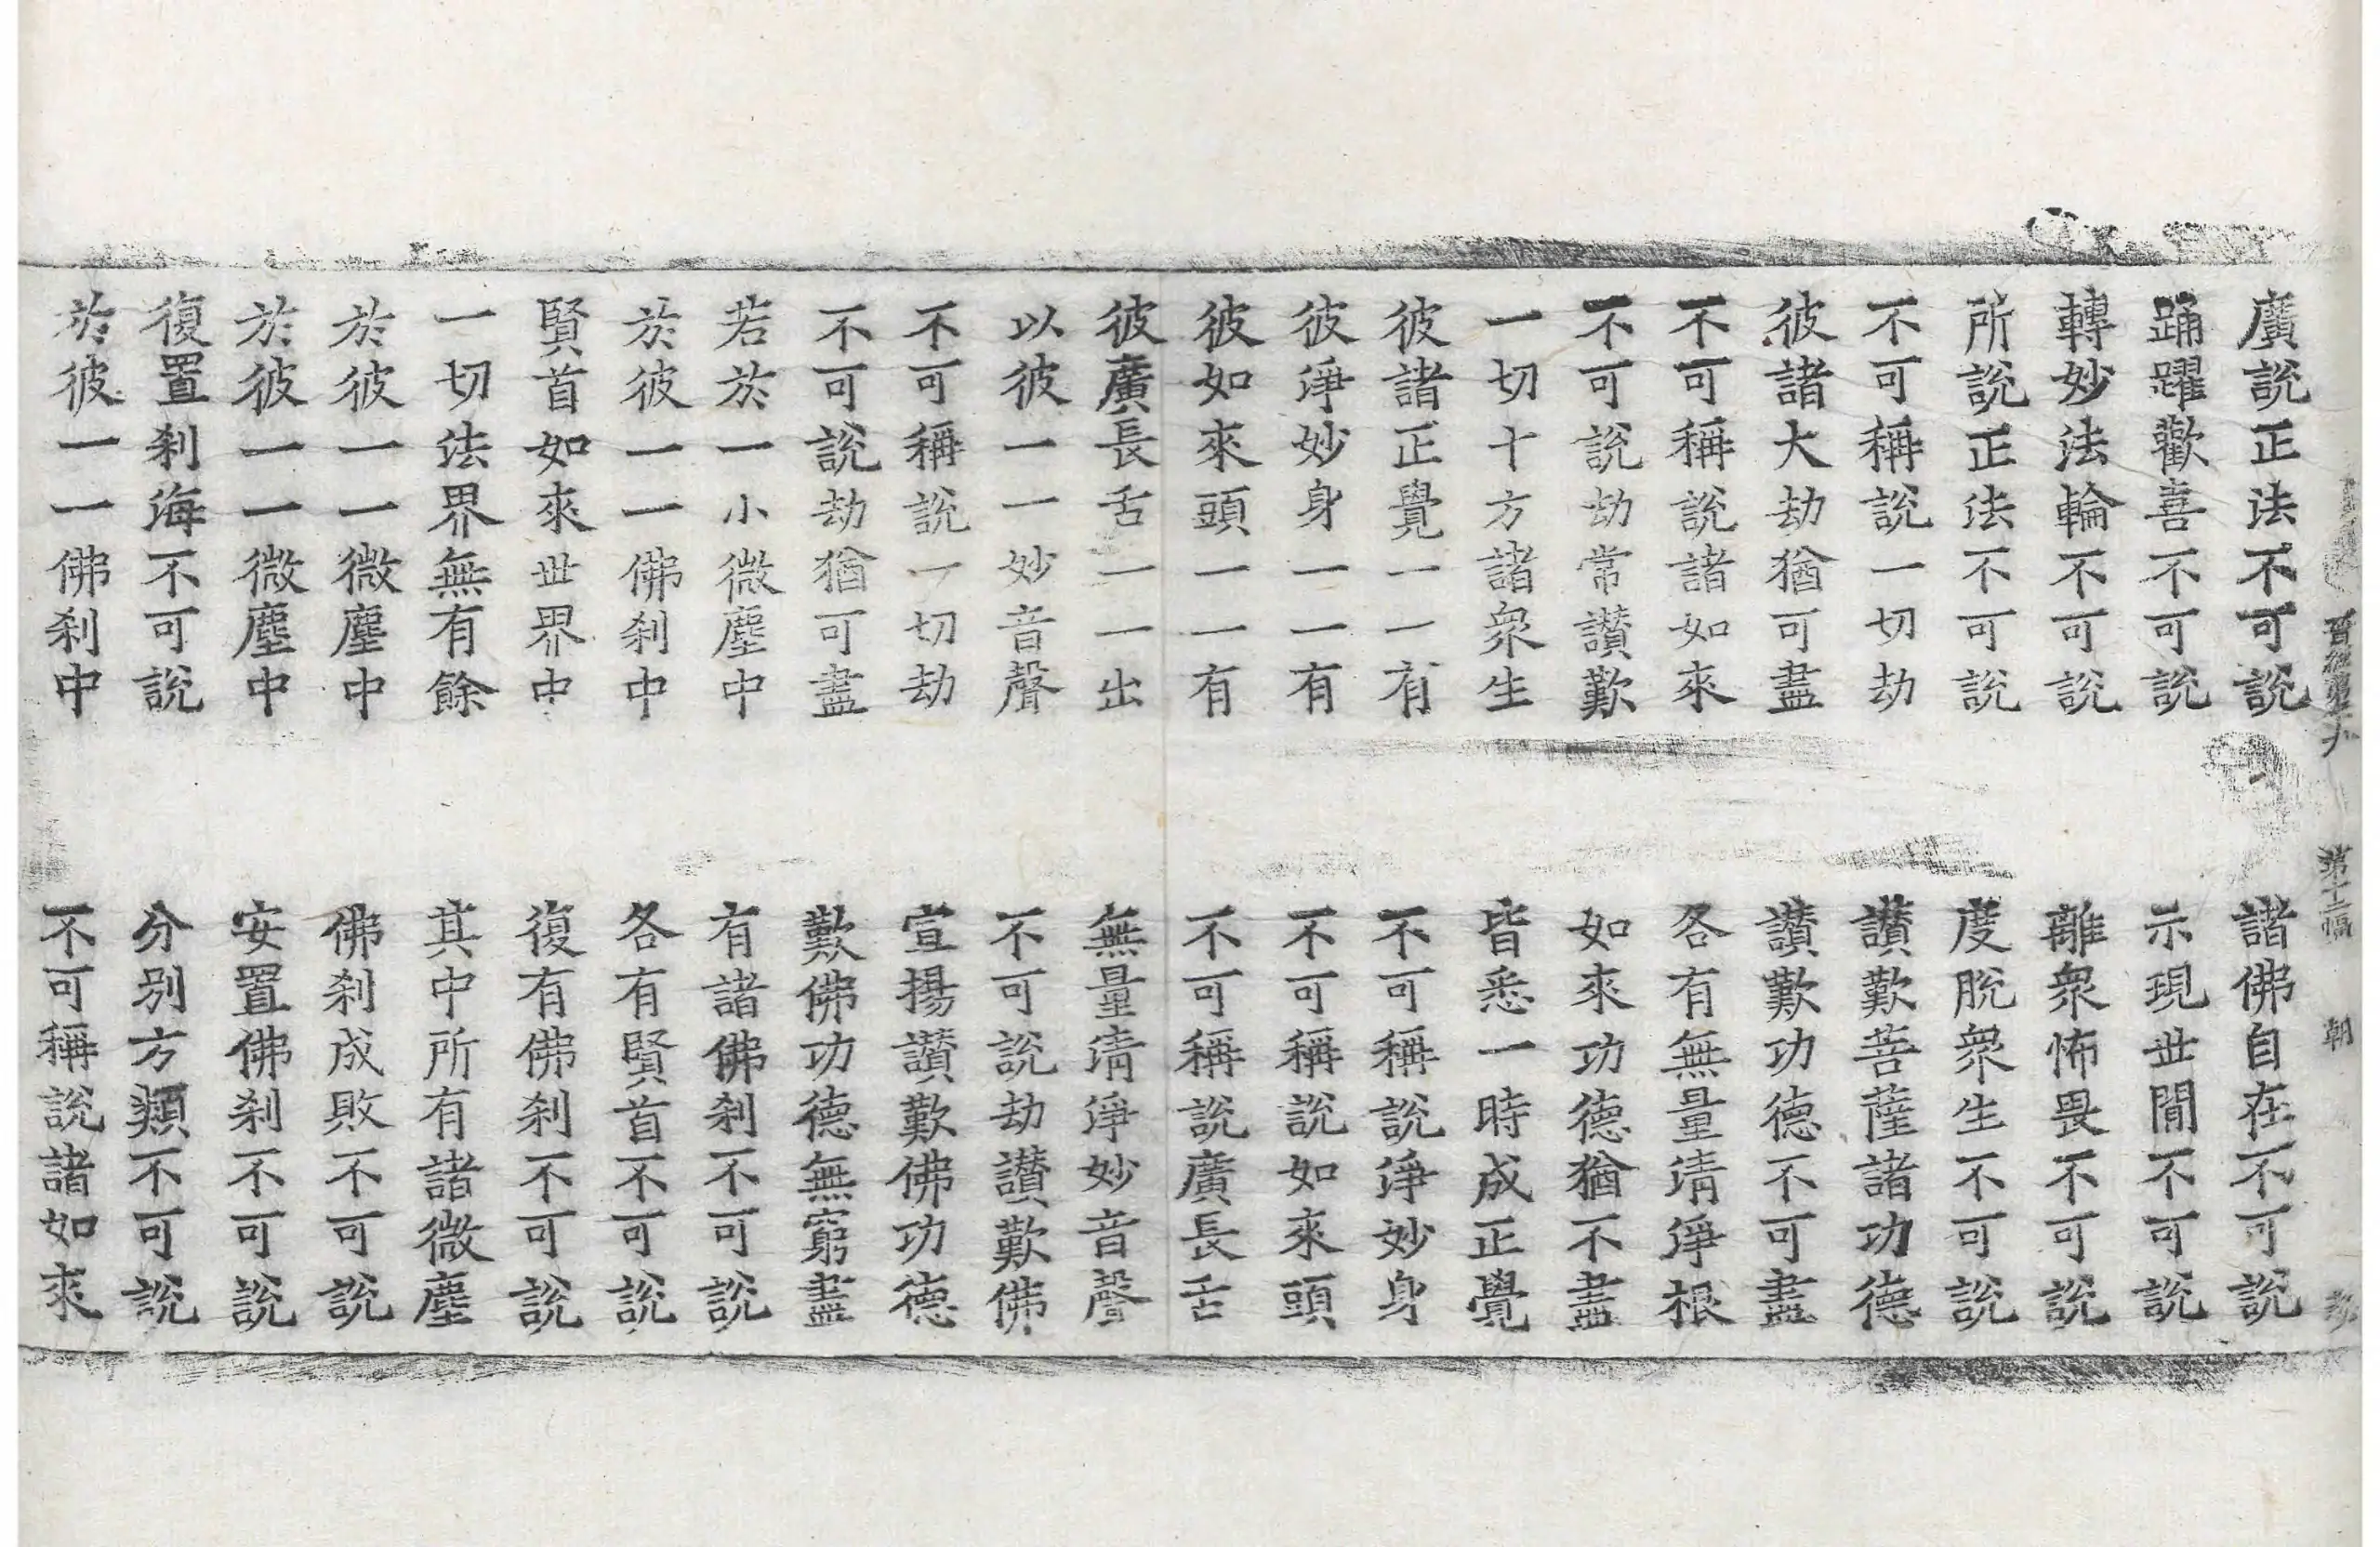 朝
廣說正法不可說 諸佛自在不可說
踊躍歡喜不可說 示現世間不可說
轉妙法輪不可說 離衆怖畏不可說
所說正法不可說 度脫衆生不可說
不可稱說一切劫 讚歎菩薩諸功德
彼諸大劫猶可盡 讚歎功德不可盡
不可稱說諸如來 各有無量清淨根
不可說劫常讚歎 如來功德猶不盡
一切十方諸衆生 皆悉一時成正覺
彼諸正覺一一有 不可稱說淨妙身
彼淨妙身一一有 不可稱說如來頭
彼如來頭一一有 不可稱說廣長舌
彼廣長舌一一出 無量清淨妙音聲
以彼一一妙音聲 不可說劫讚歎佛
不可稱說一切劫 宣揚讚歎佛功德
不可說劫猶可盡 歎佛功德無窮盡
若於一小微塵中 有諸佛刹不可說
於彼一一佛刹中 各有賢首不可說
賢首如來世界中 復有佛刹不可說
一切法界無有餘 其中所有諸微塵
於彼一一微塵中 佛刹成敗不可說
於彼一一微塵中 安置佛刹不可說
復置刹海不可說 分別方類不可說
於彼一一佛刹中 不可稱說諸如來